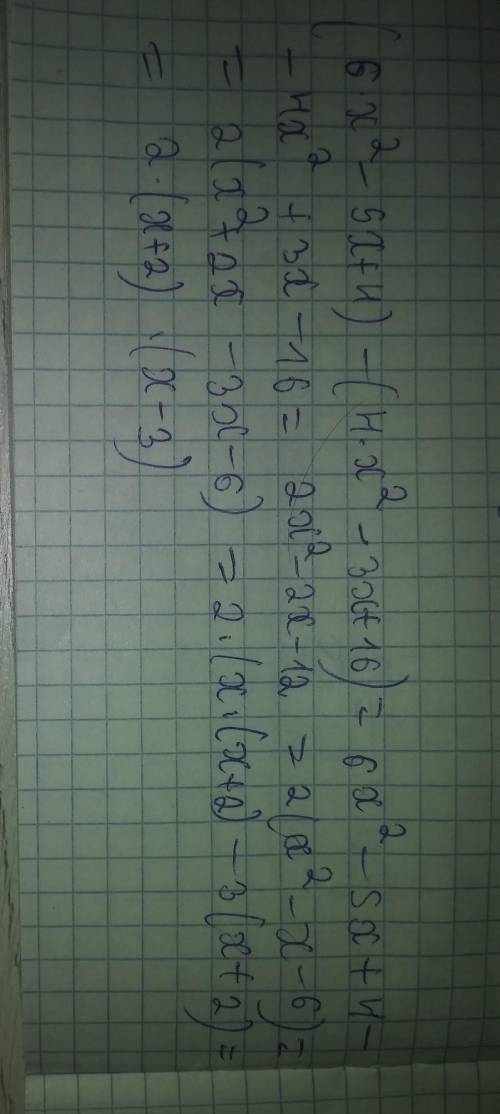 (6·x² - 5x+4) - (4·x² - 3x+16) = 6x² - 5x+4-
- 4x² + 3x - 16 = 2x² - 2x - 12 = 2(x² - x - 6) =
= 2(x² + 2x - 3x - 6) = 2·(x·(x+2) - 3(x+2) =
= 2·(x+2)·(x-3)